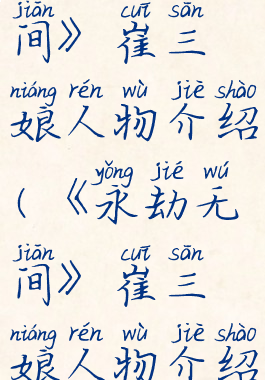 jiān cuī sān
间》 崔三
niáng rén wù jiè shào
娘人物介绍
yǒng jié wú
(《永劫无
jiān cuī sān
间》 崔三
niáng rén wù jiè shào
娘人物介绍